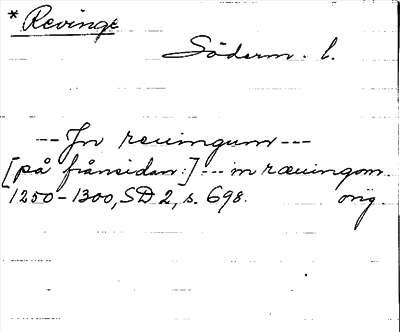 * Revinge
Söderm. l.
-- Jn reuingum ---
[på frånsidan:] --- in ræuingom
1250-1300, SD 2, s. 698. orig.